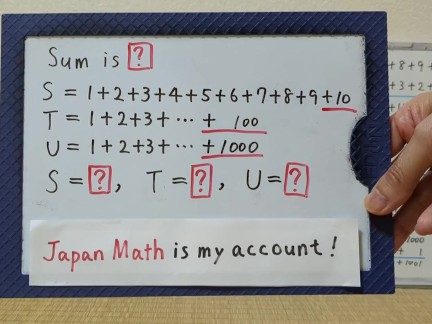 Sum is ?
S = 1+2+3+4+5+6+7+8+9+10
T = 1+2+3+ ... + 100
U = 1+2+3+ ... +1000
S = ?, T = ?, U = ?
Japan Math is my account!
+8+9+
+3+2+
1000
+ 1
+1001